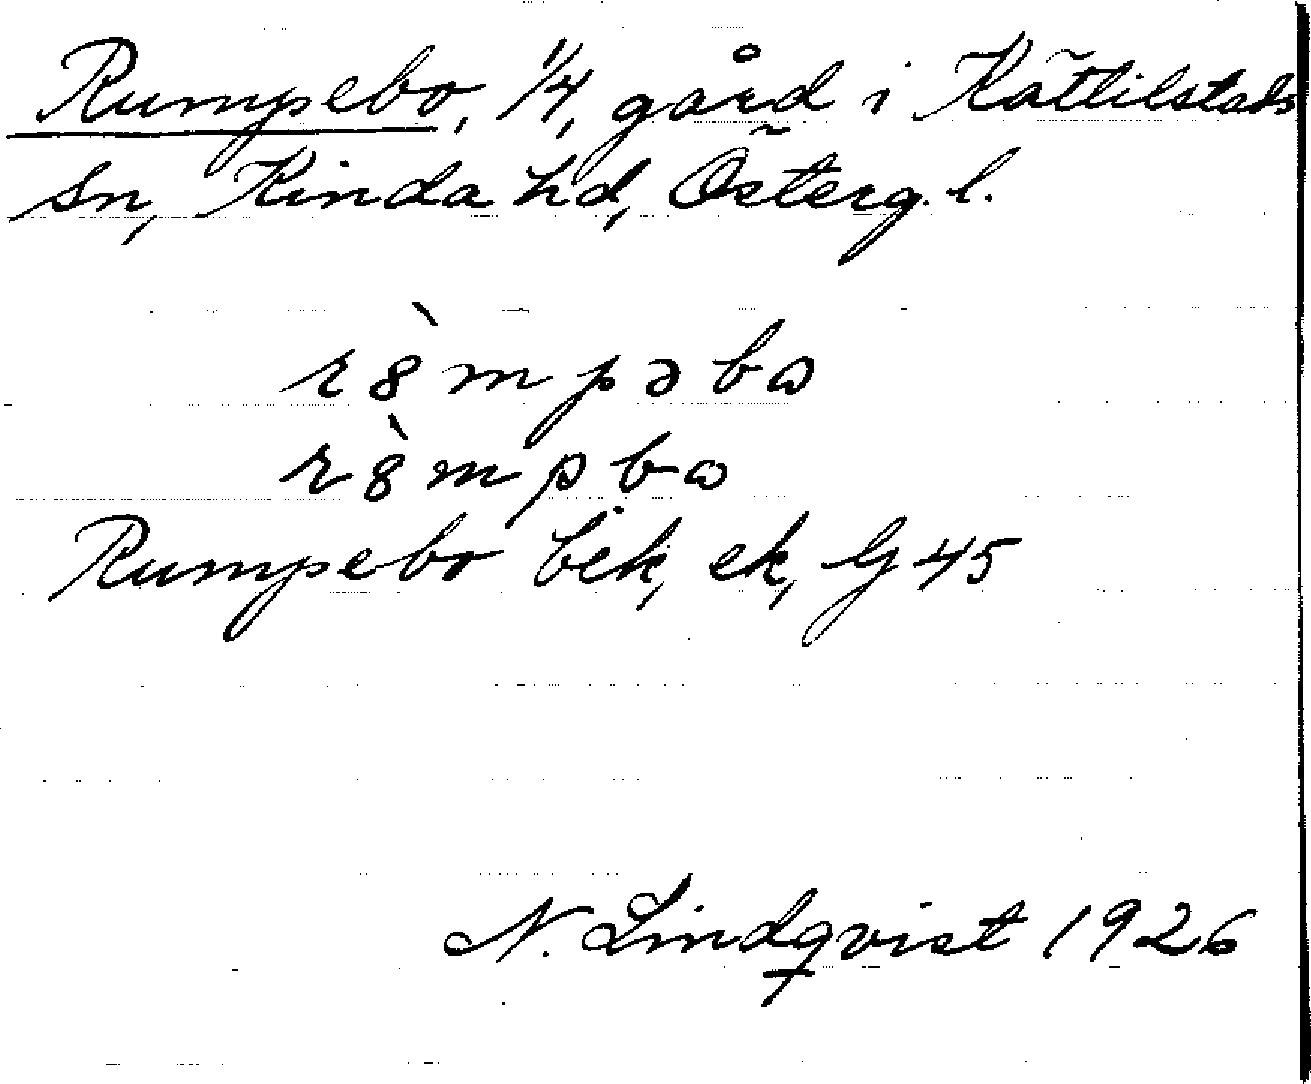 Rumpebo, 1/4, gård i Kättilstads
sn, Kinda hd, Österg. l.
r8̀mpəbω
r8̀mpbω
Rumpebo bek, ek, G 45
N. Lindqvist 1926